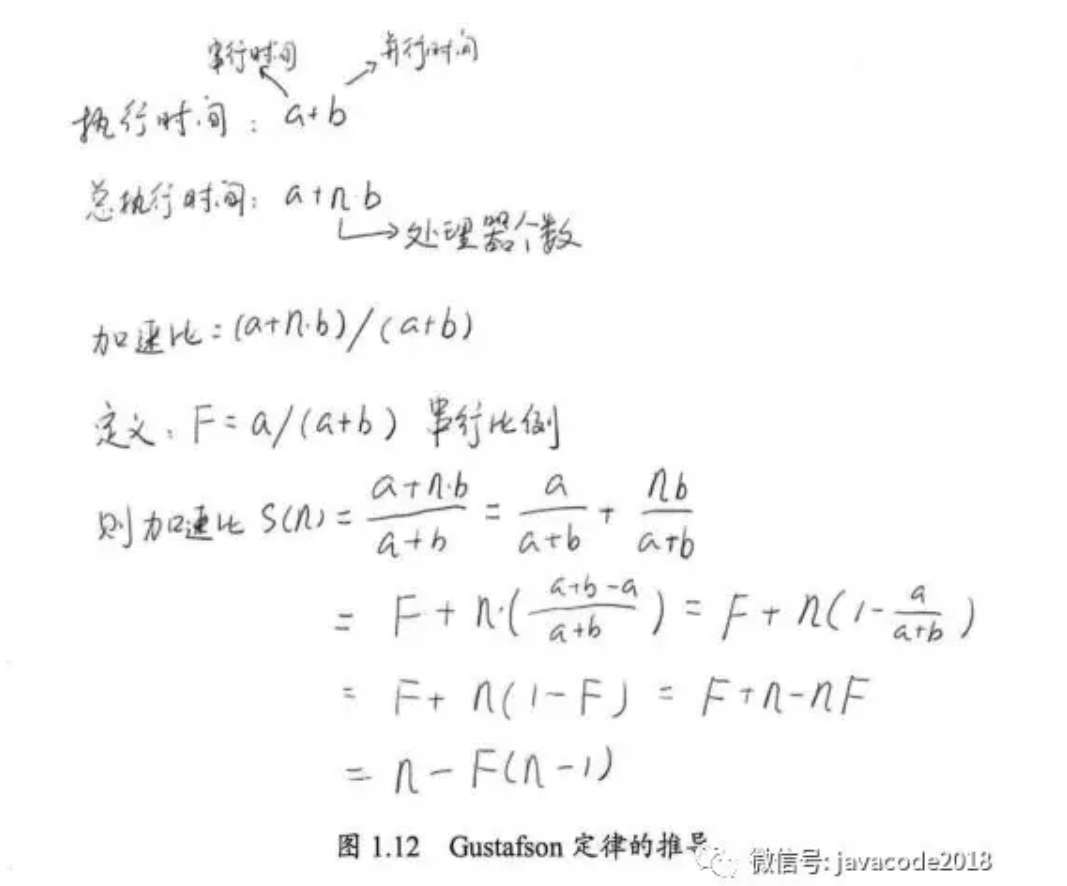 串行时间 并行时间
执行时间: a+b
总执行时间: a+n·b
处理器个数
加速比: (a+n·b)/(a+b)
定义: F=a/(a+b) 串行比例
则加速比 S(n) = \frac{a+n·b}{a+b} = \frac{a}{a+b} + \frac{nb}{a+b}
= F+n·(\frac{a+b-a}{a+b}) = F+n(1-\frac{a}{a+b})
= F+n(1-F) = F+n-nF
= n-F(n-1)
图 1.12 Gustafson 定律的推导
微信号: javacode2018